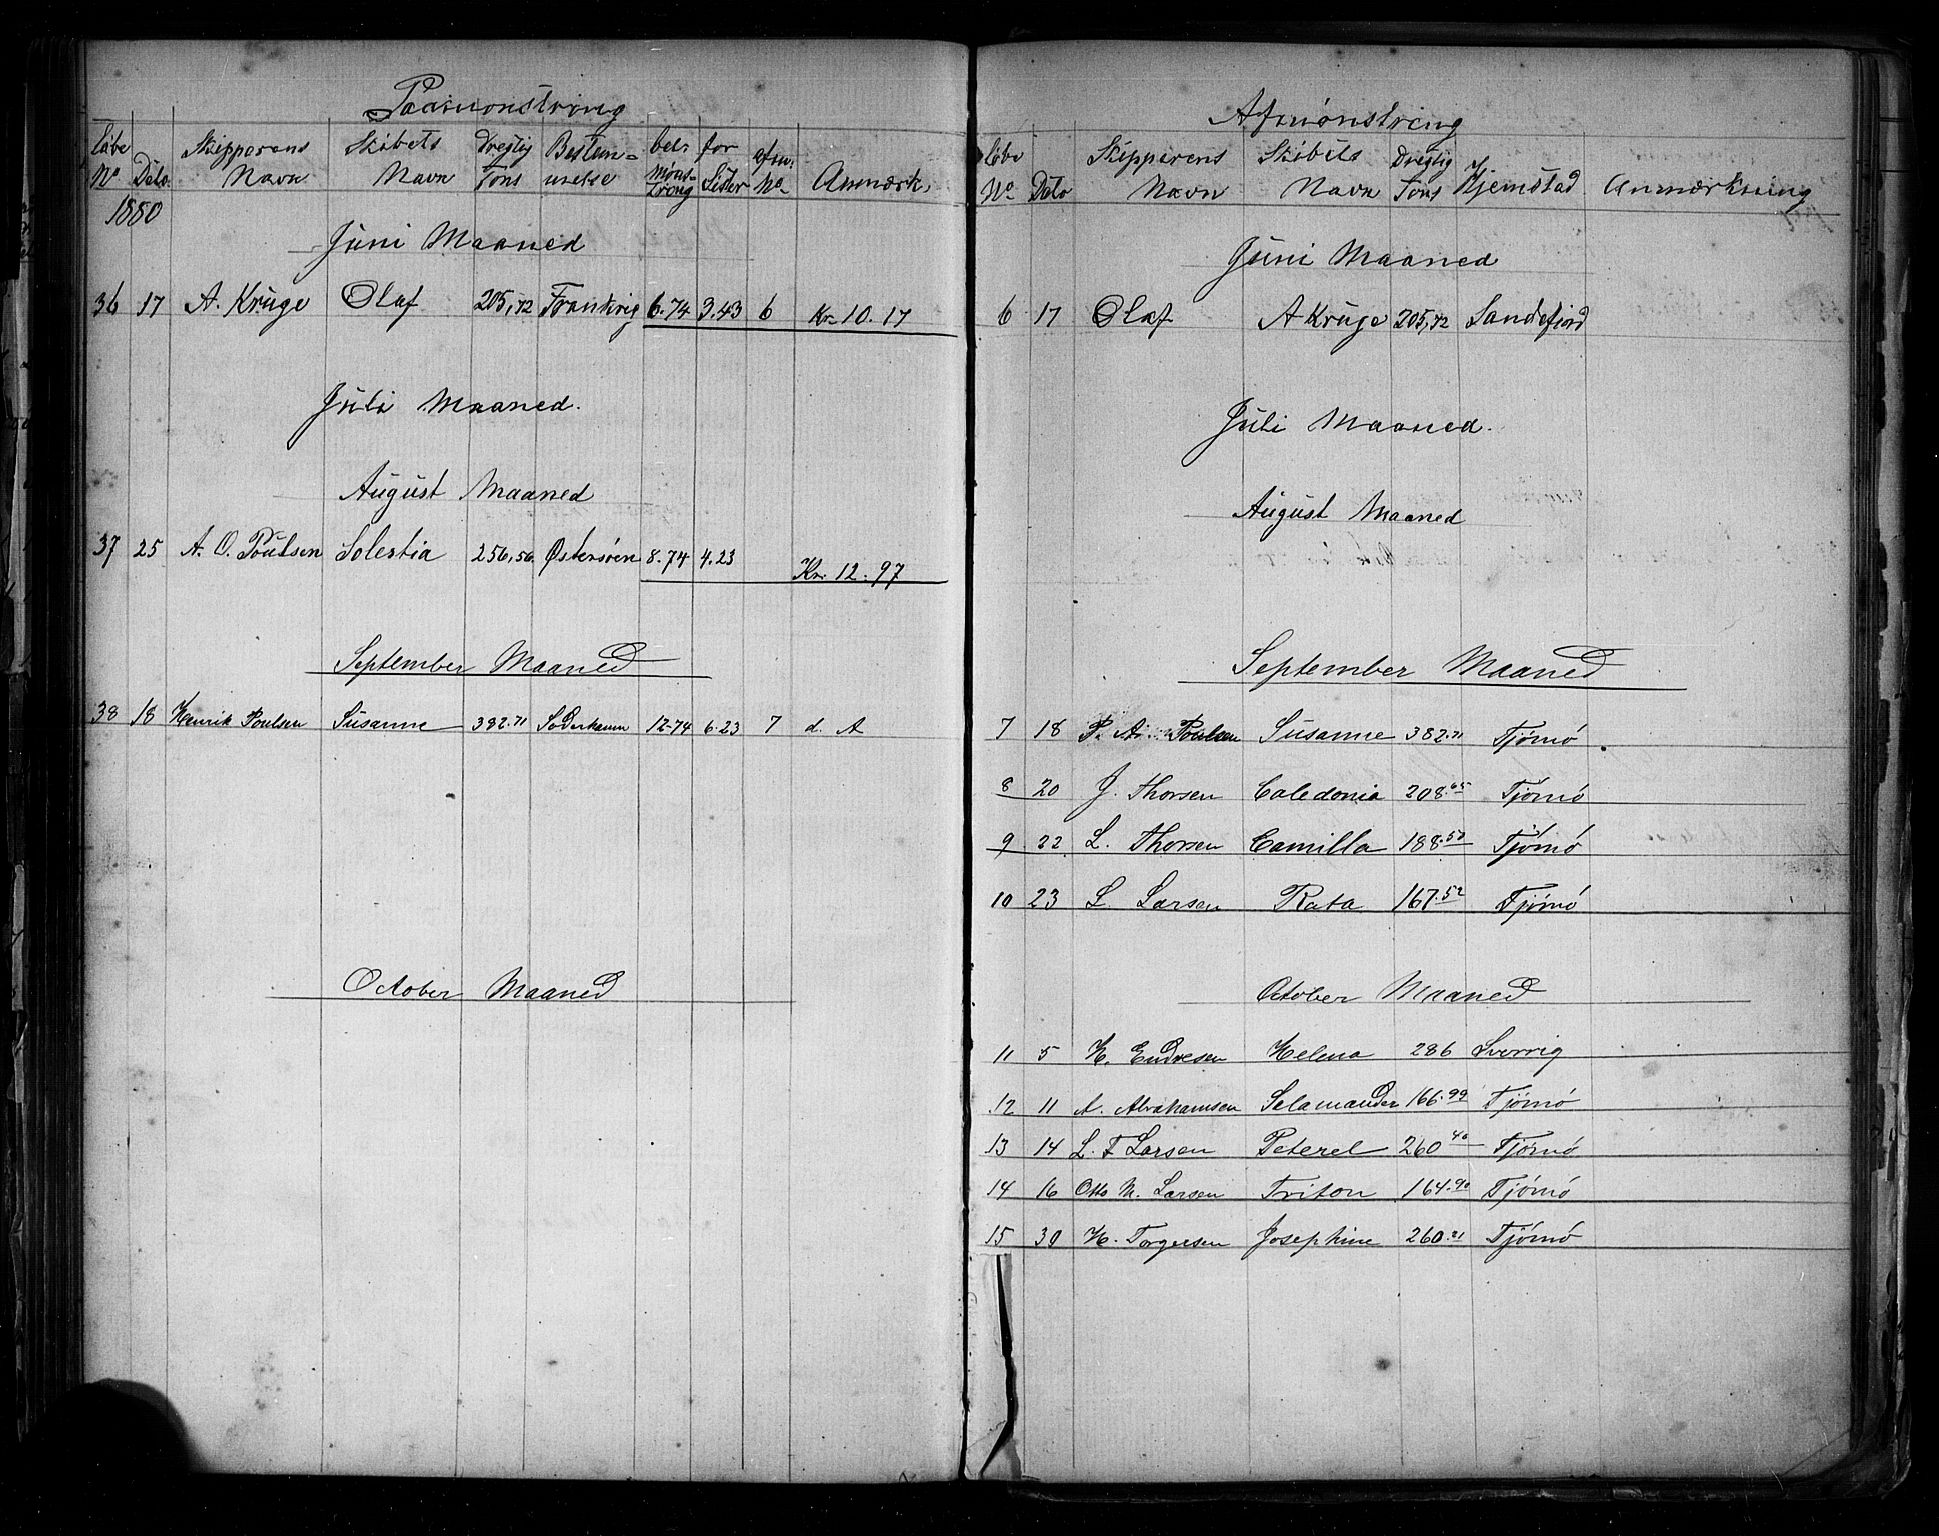 Paamonstring
Löbe Skipperens Skibets Dregtig Bestem= bet. for afm.
No Dato Navn Navn Tons melse Mønstring Lister No Anmærk.
1880
Juni Maaned
36 17 A. Kruge Olaf 205,72 Frankrig 6.74 3.43 6 Kr. 10.17
Juli Maaned.
August Maaned
37 25 A. O. Poulsen Solestia 256,56 Østersöen 8.74 4.23
Kr. 12.97
September Maaned
38 18 Henrik Poulsen Susanne 382.71 Söderhamn 12-74 6.23 7 d. A
October Maaned
Afmønstring
löbe Skipperens Skibets Drægtig
No Dato Navn Navn Tons Hjemstad Anmærkning
Juni Maaned
6 17 Olaf A Kruge 205,72 Sandefiord
Juli Maaned.
August Maaned
September Maaned
7 18 P. A. Poulsen Susanne 382.71 Tjømø
8 20 J. Thorsen Caledonia 208.65 Tjømø
9 22 L. Thorsen Camilla 188.57 Tjømø
10 23 L. Larsen Rota 167.52 Tjømø
October Maaned
11 5 H. Endresen Helena 286 Sverrig
12 11 A. Abrahamsen Salamander 166.99 Tjømø
13 14 L. F Larsen Peterel 260 40 Tjømø
14 16 Otto M. Larsen Triton 164.90 Tjømø
15 30 H. Torgersen Josephine 260.21 Tjømø